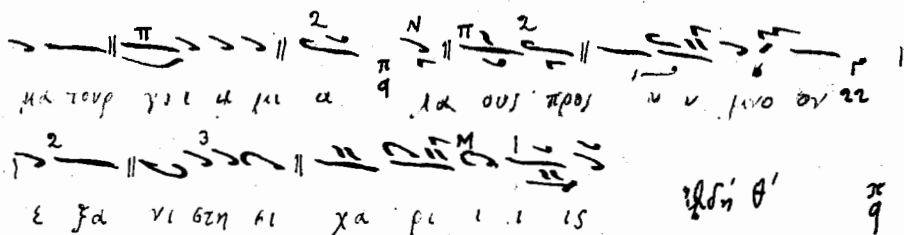 μα τουρ γει ϗ μι α λα ους προς υ υ μνο ον
ε ξα νι στη σι χα ρι ι ι ις ᾨδή θ'